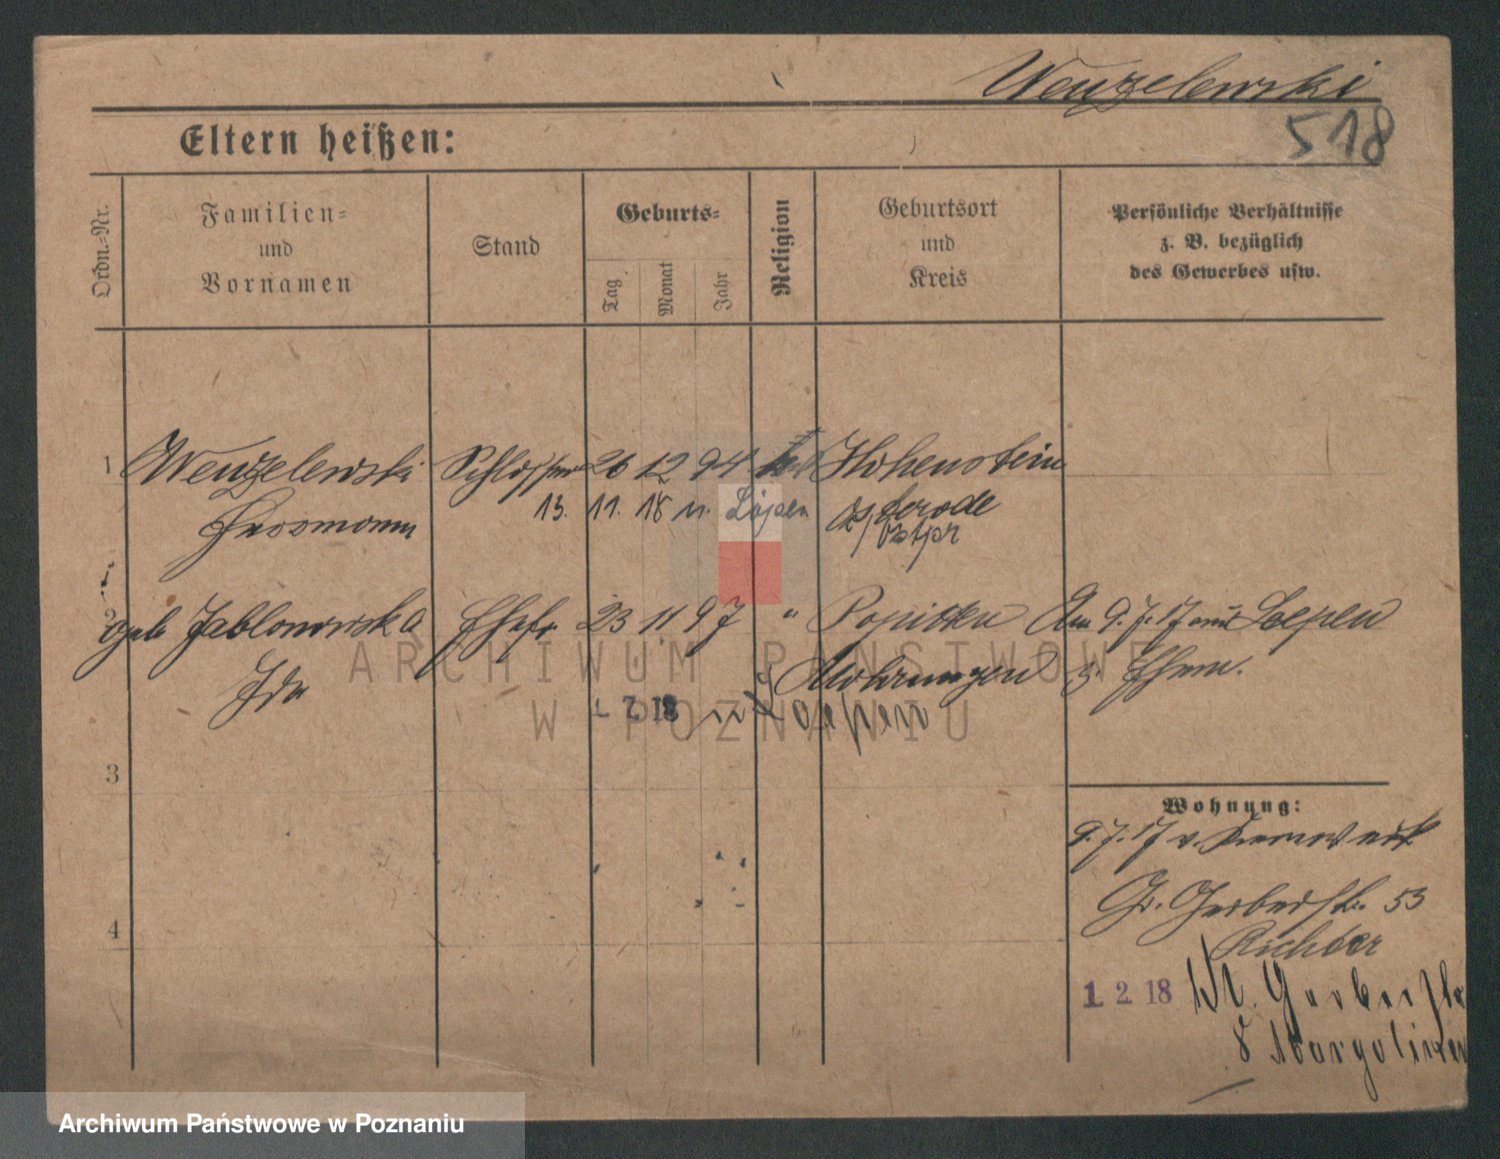 Wenzelewski
518
Eltern heißen:
Ordn.=Nr.
Familien=
und
Vornamen
Stand
Geburts=
Tag
Monat
Jahr
Religion
Geburtsort
und
Kreis
Persönliche Verhältnisse
z. B. bezüglich
des Gewerbes usw.
1 Wenzelewski Schlosser 26 12 94 Hohenstein
13. 11. 18 n. Löpen Osterode
Hermann Ostpr
2 geb Jablonowska Ehefr 23 11 97 " Am 9.7.17 aus Loepen
Ida Mohrungen z. Ehem.
1. 7. 18 n. Loepen
3
4
Wohnung:
9.7.17 v.
Gr. Gerberstr. 53
Richter
1. 2. 18 Kl. Gerberstr
8 Margoliner
ARCHIWUM PAŃSTWOWE
W POZNANIU
Archiwum Państwowe w Poznaniu